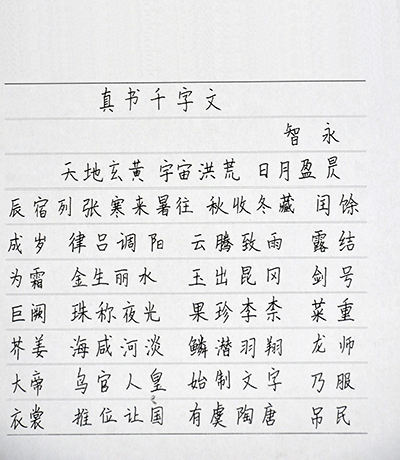 真书千字文
智永
天地玄黄 宇宙洪荒 日月盈昃
辰宿列张 寒来暑往 秋收冬藏 闰馀
成岁 律吕调阳 云腾致雨 露结
为霜 金生丽水 玉出昆冈 剑号
巨阙 珠称夜光 果珍李柰 菜重
芥姜 海咸河淡 鳞潜羽翔 龙师
大帝 鸟官人皇 始制文字 乃服
衣裳 推位让国 有虞陶唐 吊民